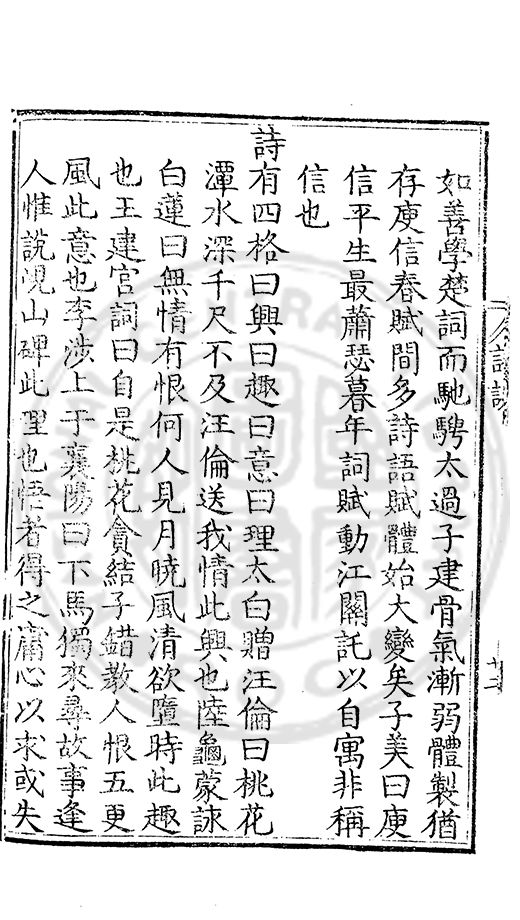 如善學楚詞而馳騁太過子建骨氣漸弱體製猶
存庾信春賦間多詩語賦體始大變矣子美曰庾
信平生最蕭瑟暮年詞賦動江關託以自寓非稱
信也
詩有四格曰興曰趣曰意曰理太白贈汪倫曰桃花
潭水深千尺不及汪倫送我情此興也陸龜蒙詠
白蓮曰無情有恨何人見月曉風清欲墮時此趣
也王建宮詞曰自是桃花貪結子錯教人恨五更
風此意也李涉上于襄陽曰下馬獨來尋故事逢
人惟說峴山碑此理也悟者得之庸心以求或失